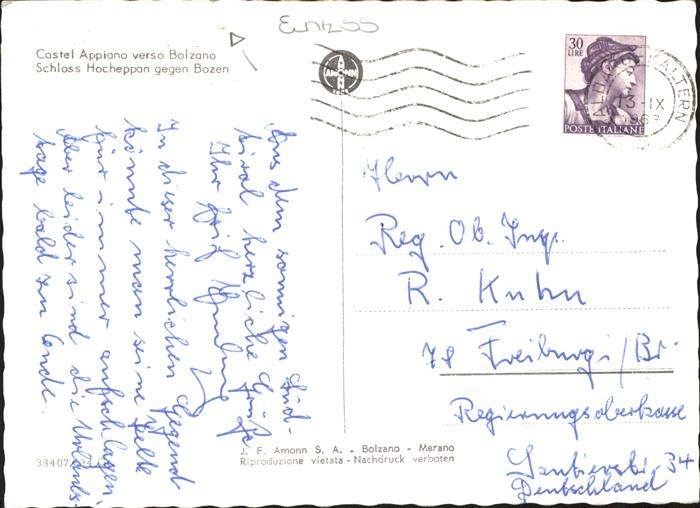 Eing 12 55
Castel Appiano verso Bolzano
Schloss Hocheppan gegen Bozen
AMONN
30
LIRE
POSTE ITALIANE
KALTERN
13-IX
Aus dem sonnigen Süd-
tirol herzliche Grüße
Ihr
In dieser herrlichen Gegend
könnte man seine Zelte
für immer aufschlagen,
aber leider sind die Urlaubs-
tage bald zu Ende.
Herrn
Reg. Ob. Insp.
R. Kuhn
78 Freiburg i/Br.
Regierungsoberkasse
34
Deutschland
J. F. Amonn S. A. - Bolzano - Merano
Riproduzione vietata - Nachdruck verboten